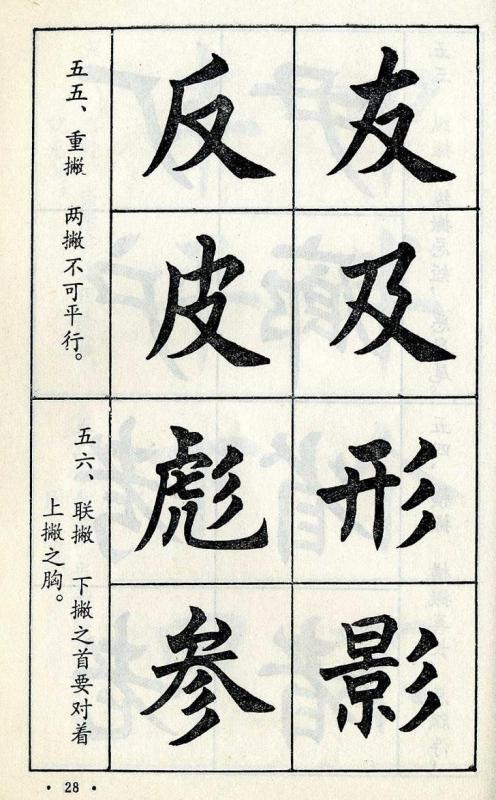 友
及
反
皮
五五、重撇 两撇不可平行。
形
影
彪
参
五六、联撇 下撇之首要对着
上撇之胸。
· 28 ·